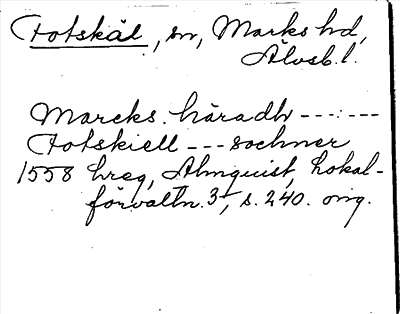 Fotskäl, sn, Marks hd,
Älvsb. l.
Marcks häradh - - - : - - -
Fotskiell - - - sochner
1558 hreg, Almquist, Lokal-
förvaltn. 3, s. 240. orig.